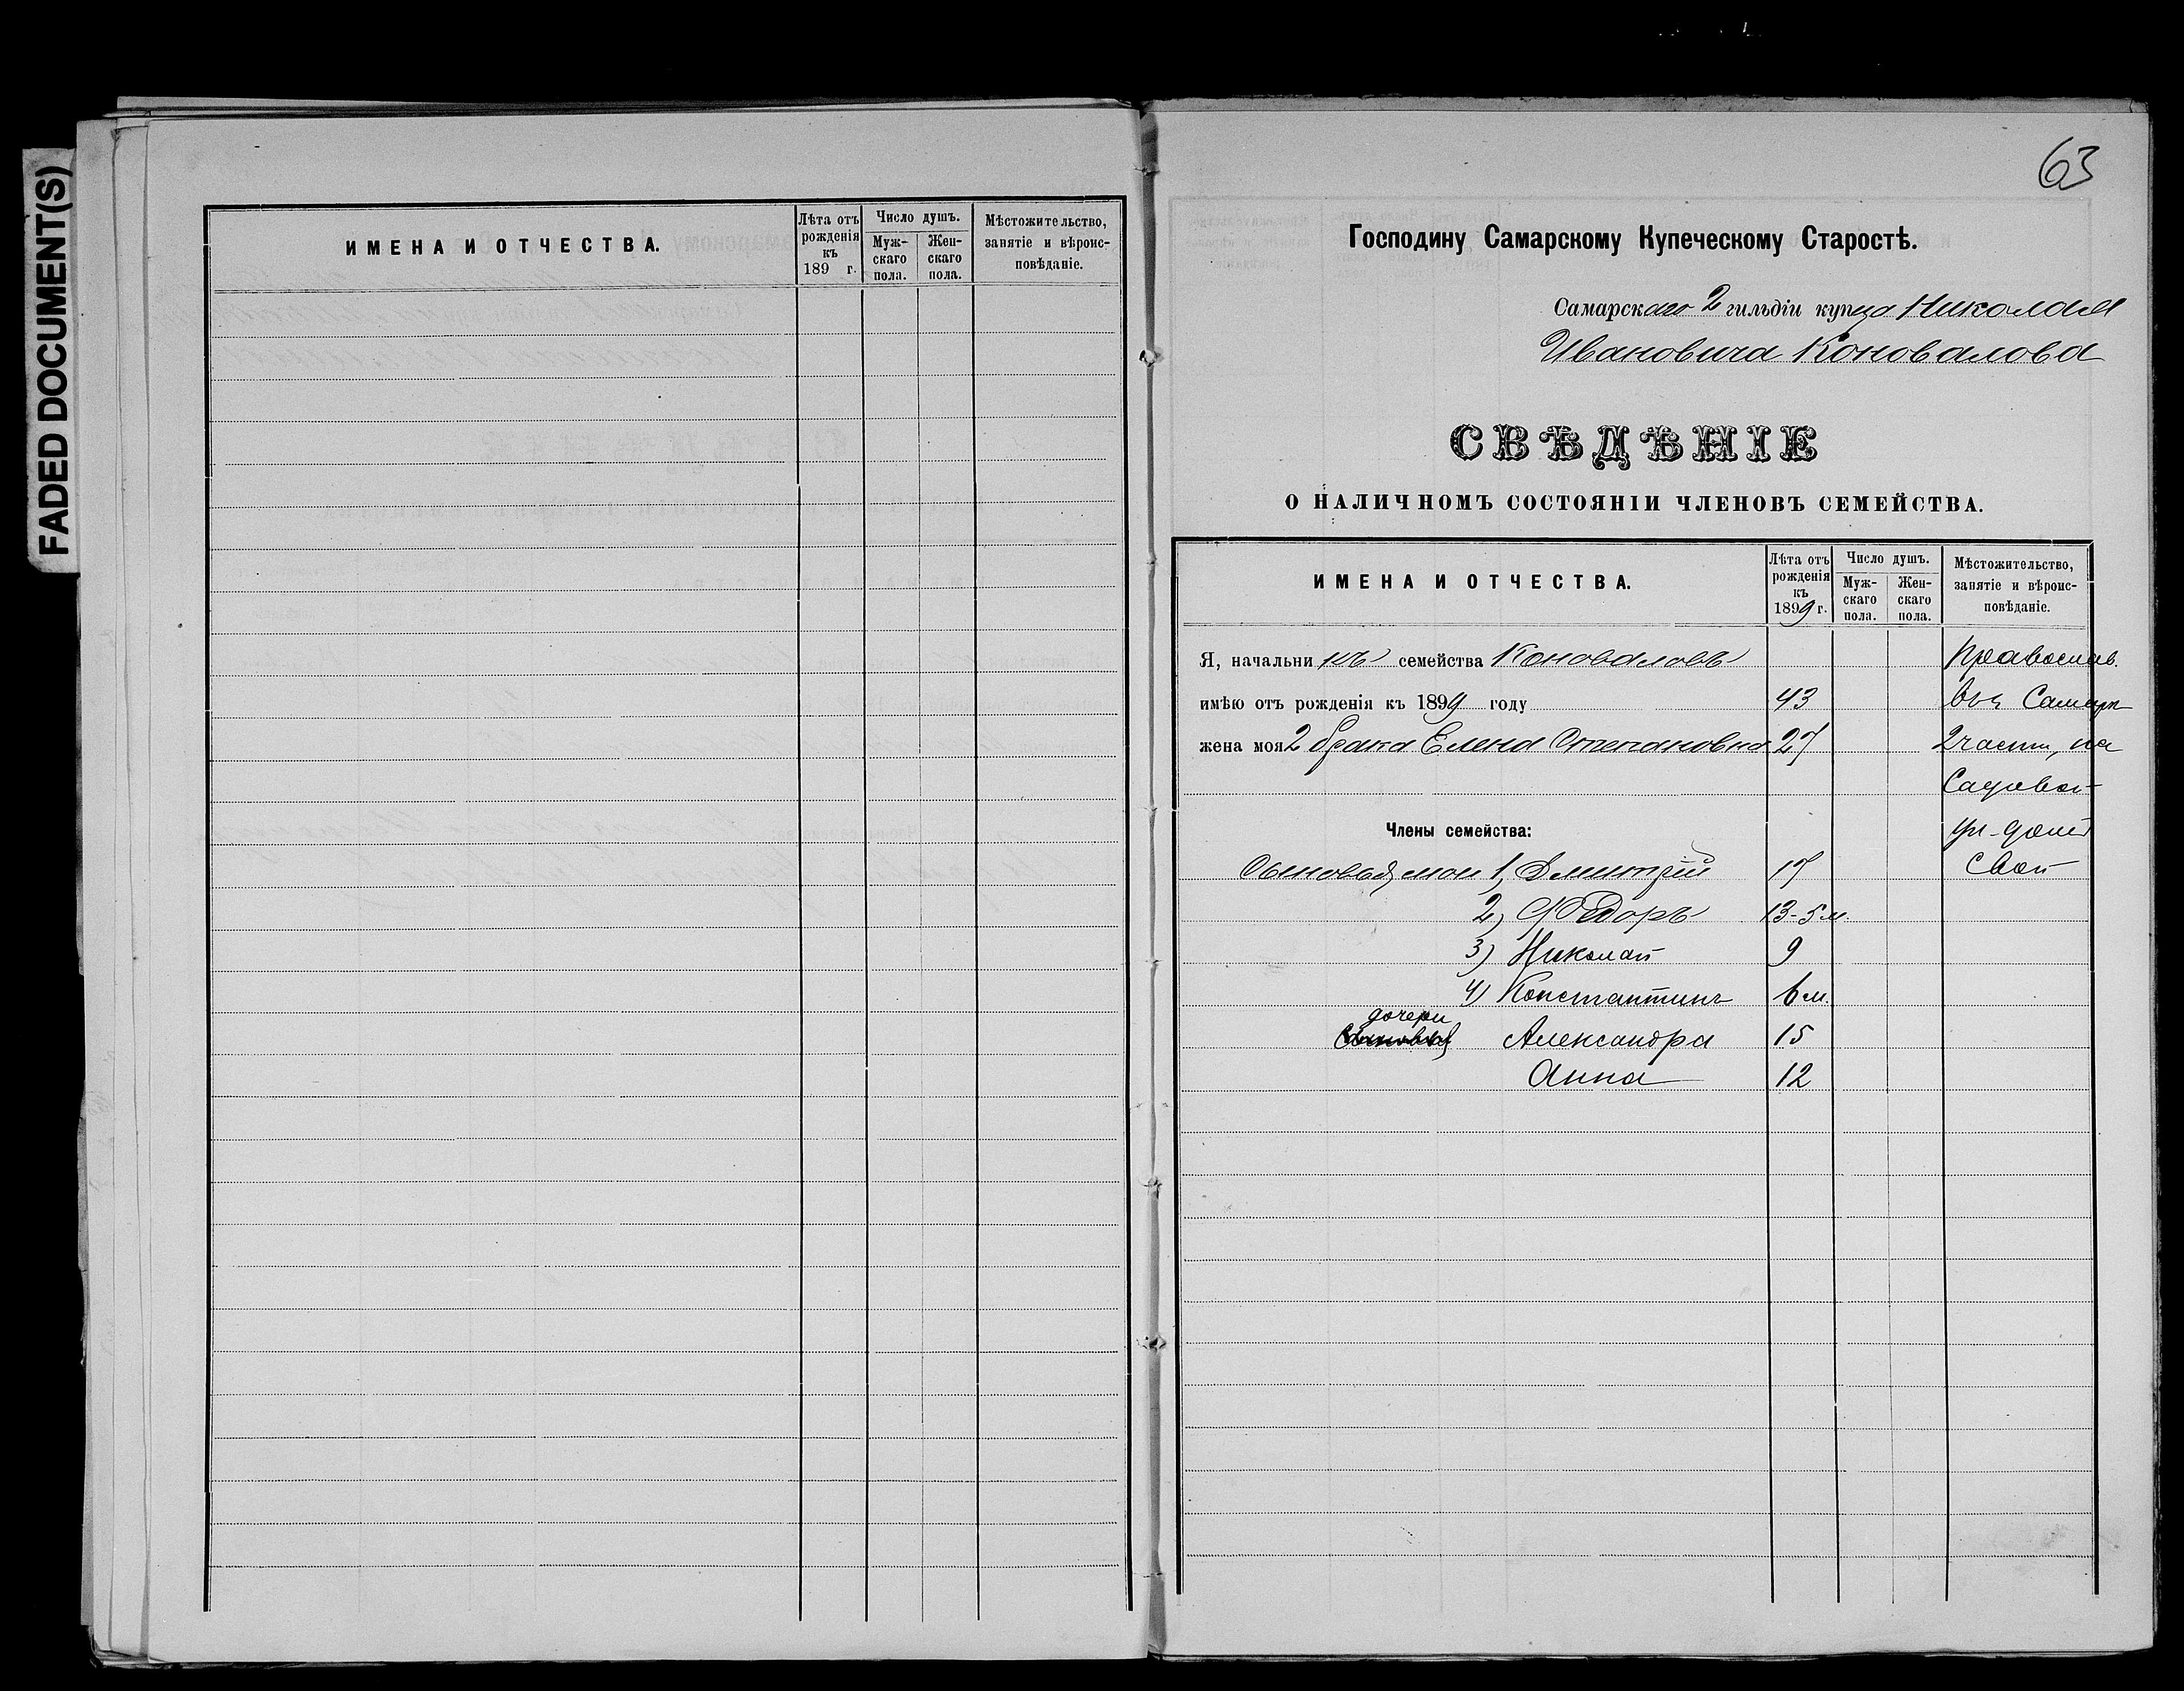 FADED DOCUMENT(S)
ИМЕНА И ОТЧЕСТВА.
Лѣта отъ рожденія къ 189 г.
Число душъ.
Мужскаго пола.
Женскаго пола.
Мѣстожительство, занятіе и вѣроисповѣданіе.
63
Господину Самарскому Купеческому Старостѣ.
Самарскаго 2 гильдіи купца Николая
Ивановича Коновалова
СВѢДѢНІЕ
О НАЛИЧНОМЪ СОСТОЯНІИ ЧЛЕНОВЪ СЕМЕЙСТВА.
ИМЕНА И ОТЧЕСТВА.
Лѣта отъ рожденія къ 1899 г.
Число душъ.
Мужскаго пола.
Женскаго пола.
Мѣстожительство, занятіе и вѣроисповѣданіе.
Я, начальникъ семейства Коноваловъ Православ.
имѣю отъ рожденія къ 1899 году 43 въ г. Самар
жена моя 2 брака Елена Степановна 27 2 части, на
Садовой
Члены семейства: ул. домъ
Сыновья мои 1, Дмитрій 17 свой
2) Ѳедоръ 13-5 м.
3) Николай 9
4) Константинъ 6 м.
дочери
Сыновья Александра 15
Анна 12